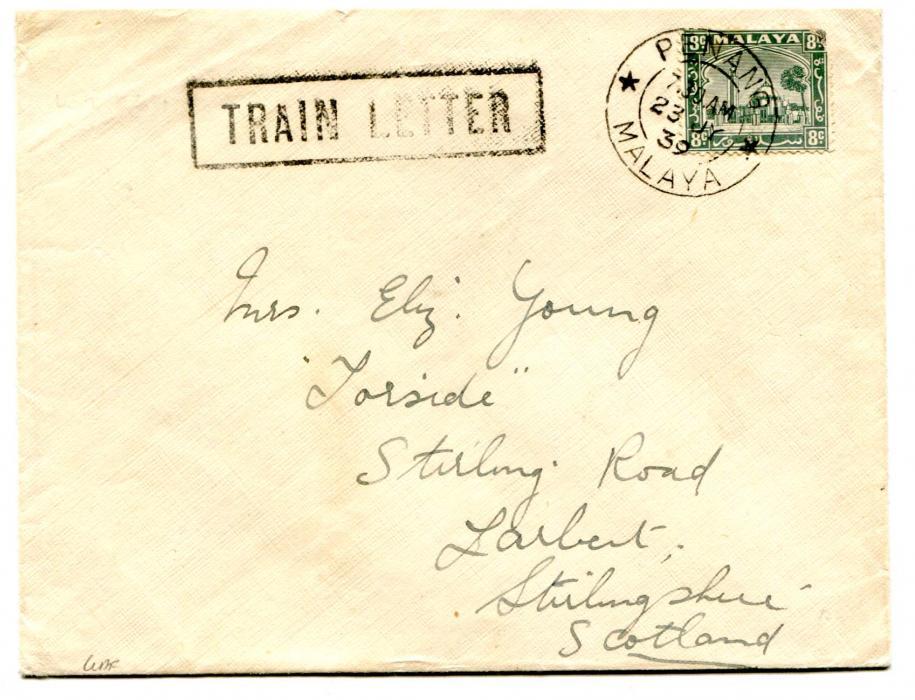 TRAIN LETTER
8c MALAYA 8c
PENANG
AM
23 JY
39
MALAYA
8c سلاڠور 8c
Mrs. Eliz. Young
"Torside"
Stirling Road
Larbert,
Stirlingshire
Scotland